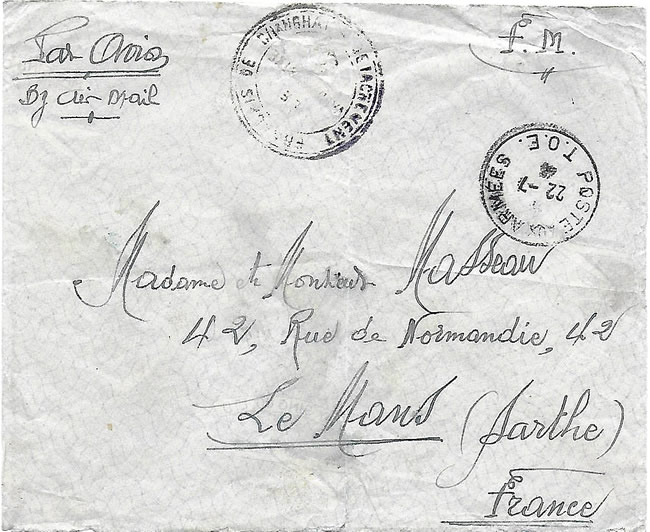 Par Avion
By Air Mail
F. M.
DETACHEMENT FRANÇAIS DE CHANGHAI
POSTE AUX ARMEES T.O.E.
22-7
46
Madame et Monsieur Masseau
42, Rue de Normandie, 42
Le Mans (Sarthe)
France